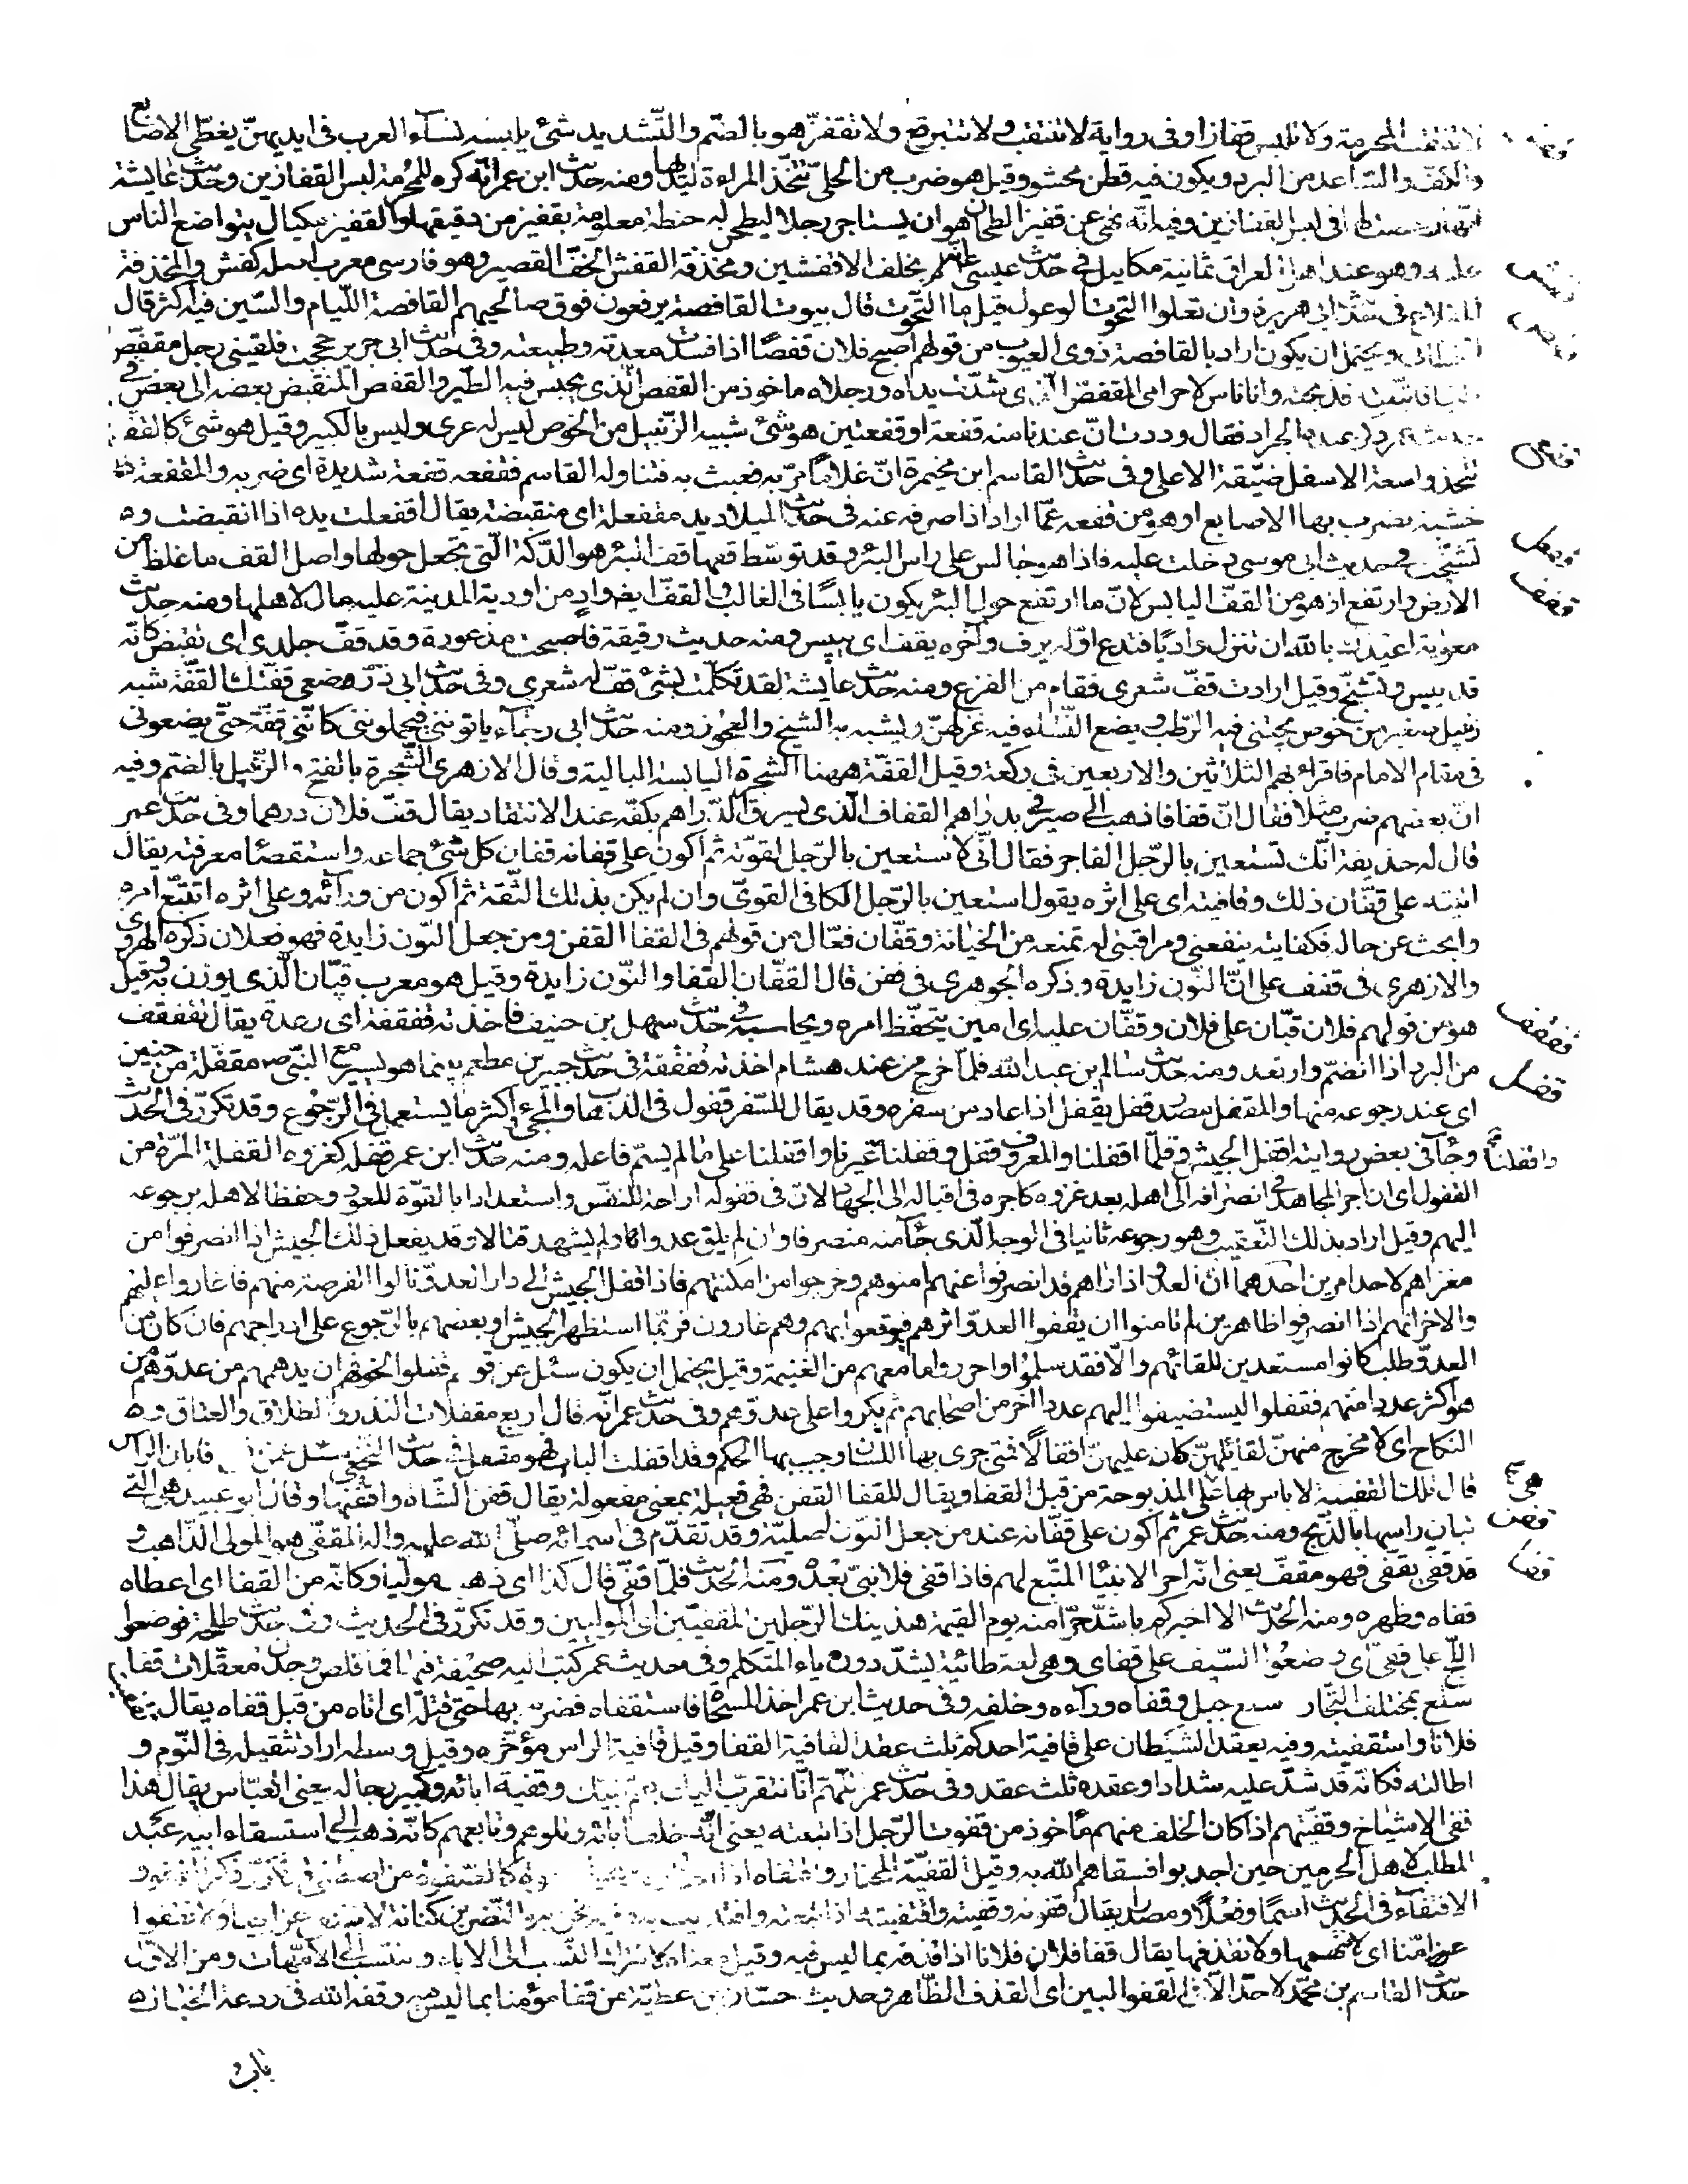 المحرمة ولا تلبس قفازا وفى رواية لا تنتقب ولا تتبرقع ولا تقفز هو بالضم والتشديد شئ يلبسه نساء العرب فى ايديهن يغطى الاصابع
والكف والساعد من البرد ويكون فيه قطن محشو وقيل هو ضرب من الحلى تتخذ المراة ليديها ومنه حديث ابن عمر انه كره للمحرمة لبس القفازين وحديث عايشة
فى لبس القفازين وفيه انه نهى عن قفيز الطحان هو ان يستاجر رجلا ليطحن له حنطة معلومة بقفيز من دقيقها والقفيز مكيال يتواضع الناس
عليه وهو عند اهل العراق ثمانية مكاييل فى حديث عيسى انه لم يخلف الا قفشين ومخذفة القفش الخف القصير وهو فارسى معرب اصله كفش والمخذفة
المقلاع فى حديث ابى هريرة وان تعلوا التحوت الوعول قيل ما التحوت قال بيوت القافصة يرفعون فوق صالحيهم القافصة اللئام والسين فيه اكثر قال
ويحتمل ان يكون اراد بالقافصة ذوى العيوب من قولهم اصبح فلان قفصا اذا فسدت معدته وطبيعته وفى حديث ابى جرير حججت فلقينى رجل مقفص
فذبحته وانا ناس لاحرامى المقفص الذى شدت يداه ورجلاه ماخوذ من القفص الذى يحبس فيه الطير والقفص المنقبض بعضه الى بعض فى
الجراد فقال وددت ان عندنا منه قفعة او قفعتين هو شئ شبيه الزنبيل من الخوص ليس له عرى وليس بالكبير وقيل هو شئ كالقفة
تتخذ واسعة الاسفل ضيقة الاعلى وفى حديث القاسم ابن مخيمرة ان غلاما مر به فعبث به فتناوله القاسم فقفعه قفعة شديدة اى ضربه والمقفعة
خشبة يضرب بها الاصابع او هو من قفعه عما اراد اذا صرفه عنه فى حديث الميلاد يد مقفعلة اى منقبضة يقال اقفعلت يده اذا انقبضت و
تشنجت فى حديث ابى موسى دخلت عليه فاذا هو جالس على راس البئر وقد توسط قفها قف البئر هو الدكة التى تجعل حولها واصل القف ما غلظ من
الارض وارتفع او هو من القف اليابس لان ما ارتفع حول البئر يكون يابسا فى الغالب والقف ايضا واد من اودية المدينة عليه مال لاهلها ومنه حديث
معوية اعيذك بالله ان تنزل واديا فتدع اوله يرف وآخره يقف اى ييبس ومنه حديث رقيقة فاصبحت مذعورة وقد قف جلدى اى تقبض كانه
قد يبس وتشنج وقيل ارادت قف شعرى فقام من الفزع ومنه حديث عايشة لقد تكلمت بشئ قف له شعرى وفى حديث ابى ذر ضعى قفتك القفة شبه
زنبيل صغير من خوص يجتنى فيه الرطب ويضع النساء فيه غزلهن ويشبه به الشيخ والعجوز ومنه حديث ابى رجاء ياتوننى فيحملوننى كاننى قفة حتى يضعونى
فى مقام الامام فاقرا بهم الثلاثين والاربعين فى ركعة وقيل القفة ههنا الشجرة اليابسة البالية وقال الازهرى الشجرة بالفتح والزنبيل بالضم وفيه
ان بعضهم ضرب مثلا فقال ان قفافا ذهب الى صيرفى بدراهم القفاف الذى يسرق الدراهم بكفه عند الانتقاد يقال قف فلان درهما وفى حديث عمر
قال له حذيفة انك تستعين بالرجل الفاجر فقال انى لاستعين بالرجل لقوته ثم اكون على قفانه قفان كل شئ جماعه واستقصاء معرفته يقال
اتيته على قفان ذلك وقافيته اى على اثره يقول استعين بالرجل الكافى القوى وان لم يكن بذلك الثقة ثم اكون من ورائه وعلى اثره اتتبع امره
وابحث عن حاله فكفايته ينفعنى ومراقبتى له تمنعه من الخيانة وقفان فعال من قولهم فى القفا القفن ومن جعل النون زايدة فهو فعلان ذكره الهروى
والازهرى فى قفف على ان النون زايدة وذكره الجوهرى فى قفن قال القفان القفا والنون زايدة وقيل هو معرب قبان الذى يوزن به وقيل
هو من قولهم فلان قبان على فلان وقفان عليه اى امين يتحفظ امره ويحاسبه وفى حديث سهل بن حنيف فاخذته قفقفة اى رعدة يقال تقفقف
من البرد اذا انضم وارتعد ومنه حديث سالم بن عبد الله فلما خرج من عند هشام اخذته قفقفة فى حديث جبير بن مطعم بينما هو يسير مع النبى ص مقفله من حنين
اى عند رجوعه منها والمقفل مصدر قفل يقفل اذا عاد من سفره وقد يقال للسفر قفول فى الذهاب والمجئ واكثر ما يستعمل فى الرجوع وقد تكرر فى الحديث
وجاء فى بعض رواياته اقفل الجيش وقلما اقفلنا والمعروف قفل وقفلنا واقفلنا غيرنا واقفلنا على ما لم يسم فاعله ومنه حديث ابن عمر قفلة كغزوة القفلة المرة من
القفول اى ان اجر المجاهد فى انصرافه الى اهله بعد غزوه كاجره فى اقباله الى الجهاد لان فى قفوله اراحة للنفس واستعدادا بالقوة للعود وحفظا لاهله برجوعه
اليهم وقيل اراد بذلك التعقيب وهو رجوعه ثانيا فى الوجه الذى جاء منه منصرفا وان لم يلق عدوا ولم يشهد قتالا وقد يفعل ذلك الجيش اذا انصرفوا من
مغزاهم لاحد امرين احدهما ان العدو اذا راهم قد انصرفوا عنهم امنوهم وخرجوا من امكنتهم فاذا قفل الجيش الى دار العدو نالوا الفرصة منهم فاغاروا عليهم
والاخر انهم اذا انصرفوا ظاهرين لم يامنوا ان يقفوا العدو اثرهم فيوقعوا بهم وهم غارون فربما استظهر الجيش او بعضهم بالرجوع على ادراجهم فان كان من
العدو طلب كانوا مستعدين للقائهم والا فقد سلموا واحرزوا ما معهم من الغنيمة وقيل يحتمل ان يكون سئل عن قوم قفلوا لخوفهم ان يدهمهم من عدوهم من
هو اكثر عددا منهم فقفلوا ليستضيفوا اليهم عددا آخر من اصحابهم ثم يكروا على عدوهم وفى حديث عمر انه قال اربع مقفلات النذر والطلاق والعتاق و
النكاح اى لا مخرج منهن لقائلهن كان عليهن اقفالا فمتى جرى بها اللسان وجب بها الحكم وقد اقفلت الباب فهو مقفل فى حديث النخعى سئل عمن فابان الراس
قال تلك القفينة لا باس بها هى المذبوحة من قبل القفا ويقال للقفا القفن فهى فعيلة بمعنى مفعولة يقال قفن الشاة واقتفنها وقال ابو عبيدة هى التى
تبان راسها بالذبح ومنه حديث عمر ثم اكون على قفانه عند من جعل النون اصلية وقد تقدم فى اسمائه صلى الله عليه واله المقفى هو المولى الذاهب و
قد قفى يقفى فهو مقف يعنى انه اخر الانبياء المتبع لهم فاذا قفى فلا نبى بعده ومنه الحديث فلما قفى قال كذا اى ذهب موليا وكانه من القفا اى اعطاه
قفاه وظهره ومنه الحديث الا اخبركم باشد حرا منه يوم القيمة هذينك الرجلين المقفيين اى الموليين وقد تكرر فى الحديث وفى حديث طلحة فوضعوا
اللج على قفى اى وضعوا السيف على قفاى وهى لغة طائية يشددون ياء المتكلم وفى حديث عمر كتب اليه صحيفة فيها فما قلص وجدن معقلات قفا
سلع بمختلف التجار سلع جبل وقفاه وراءه وخلفه وفى حديث ابن عمر اخذ المسحاة فاستقفاه فضربه بها حتى قتله اى اتاه من قبل قفاه يقال
فلانا واستقفيته وفيه يعقد الشيطان على قافية احدكم ثلث عقد القافية القفا وقيل قافية الراس مؤخره وقيل وسطه اراد تثقيله فى النوم و
اطالته فكانه قد شد عليه شدادا وعقده ثلث عقد وفى حديث عمر اللهم انا نتقرب اليك بعم نبيك وقفية ابائه وكبير رجاله يعنى العباس يقال هذا
قفى الاشياخ وقفيتهم اذا كان الخلف منهم مأخوذ من قفوت الرجل اذا تبعته يعنى انه خلف ابائه وتلوهم وتابعهم كانه ذهب الى استسقاء ابيه عبد
المطلب لاهل الحرمين حين اجدبوا فسقاهم الله به وقيل القفية المختار واقتفاه اذا اختاره
الاقتفاء فى الحديث اسما وفعلا ومصدرا يقال قفوته وقفيته واقتفيته اذا تبعته واقتديت به وفيه نحن بنو النضر بن كنانة لا ننتفى عن ابينا ولا نقفوا
امنا اى لا نتهمها ولا نقذفها يقال قفا فلان فلانا اذا قذفه بما ليس فيه وقيل معناه لا نترك النسب الى الاباء وننتسب الى الامهات ومن الاول
حديث القاسم بن محمد لا حد الا فى القفو البين اى القذف الظاهر وحديث حسان بن عطية من قفا مؤمنا بما ليس فيه وقفه الله فى ردغة الخبال
قفش
قفص
قفع
قفعل
قفف
قفقف
قفل
قفن
قفا
باب